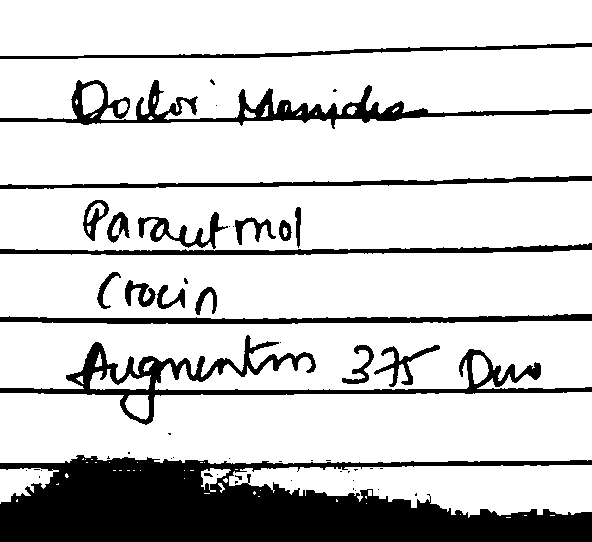 Doctor
Paracetmol
Crocin
Augmentin 375 Duo